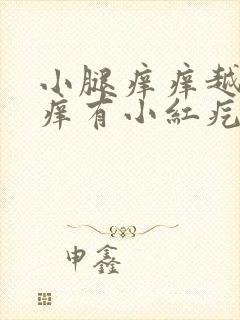 小腿痒痒越
痒有小紅疙
申鑫